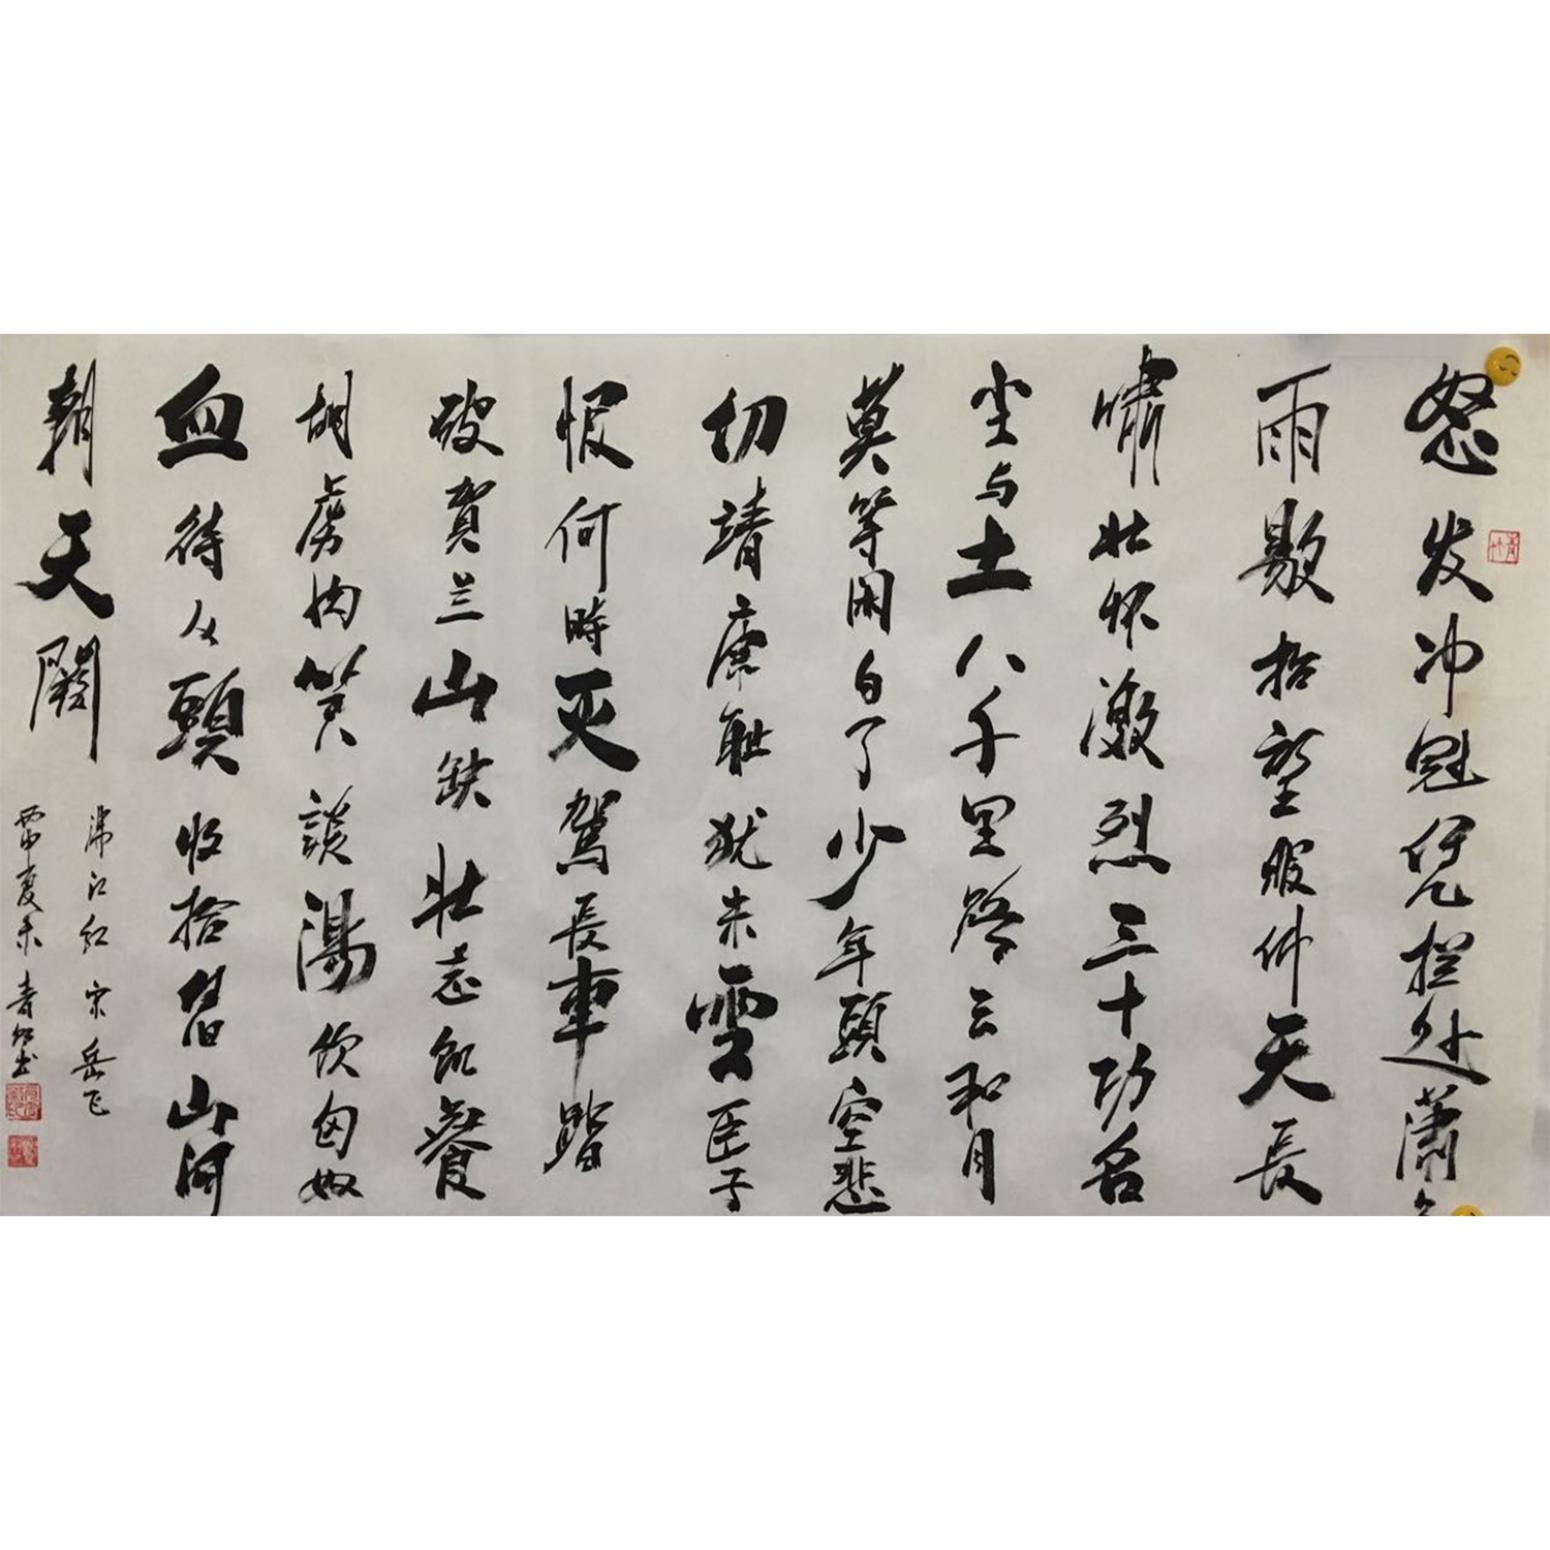 怒发冲冠凭栏处潇々
雨歇抬望眼仰天長
嘯壮怀激烈三十功名
尘与土八千里路云和月
莫等闲白了少年頭空悲
切靖康耻犹未雪臣子
恨何時灭駕長車踏
破賀兰山缺壮志飢餐
胡虏肉笑談渴饮匈奴
血待从頭收拾舊山河
朝天闕
满江红 宋 岳飞
丙申夏末